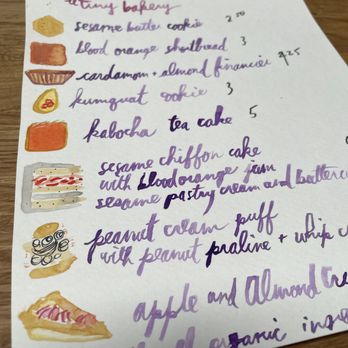 tiny bakery
sesame butter cookie 2.50
blood orange shortbread 3
cardamom + almond financier 4.25
kumquat cookie 3
kabocha tea cake 5
sesame chiffon cake
with blood orange jam
sesame pastry cream and butterc
peanut cream puff
with peanut praline + whip c
apple and Almond
organic ing